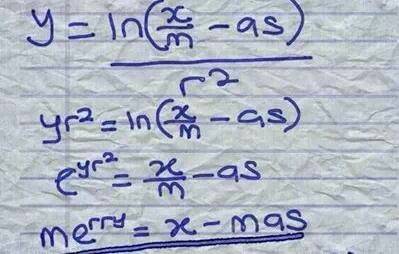 y = ln(x/m - as)
r²
yr² = ln(x/m - as)
e^yr² = x/m - as
me^rry = x - mas